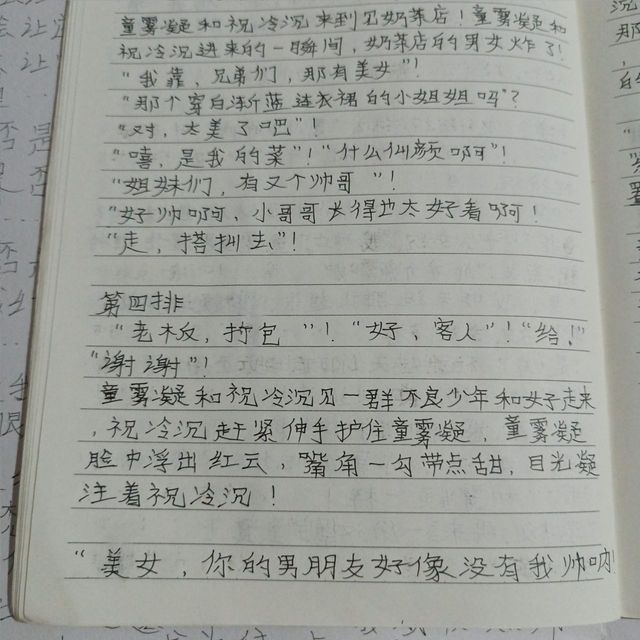 童雾凝和祝冷沉来到见奶茶店！童雾凝和
祝冷沉进来的一瞬间，奶茶店的男女炸了！
“我靠，兄弟们，那有美女”！
“那个穿白渐蓝连衣裙的小姐姐吗”？
“对，太美了吧”！
“嘻，是我的菜”！“什么仙颜啊”！
“姐妹们，有又个帅哥”！
“好帅啊，小哥哥长得也太好看啊！
“走，搭讪去”！
第四排
“老板，打包”！“好，客人”！“给！”
“谢谢”！
童雾凝和祝冷沉见一群不良少年和女子走来
，祝冷沉赶紧伸手护住童雾凝，童雾凝
脸中浮出红云，嘴角一勾带点甜，目光凝
注着祝冷沉！
“美女，你的男朋友好像没有我帅呐